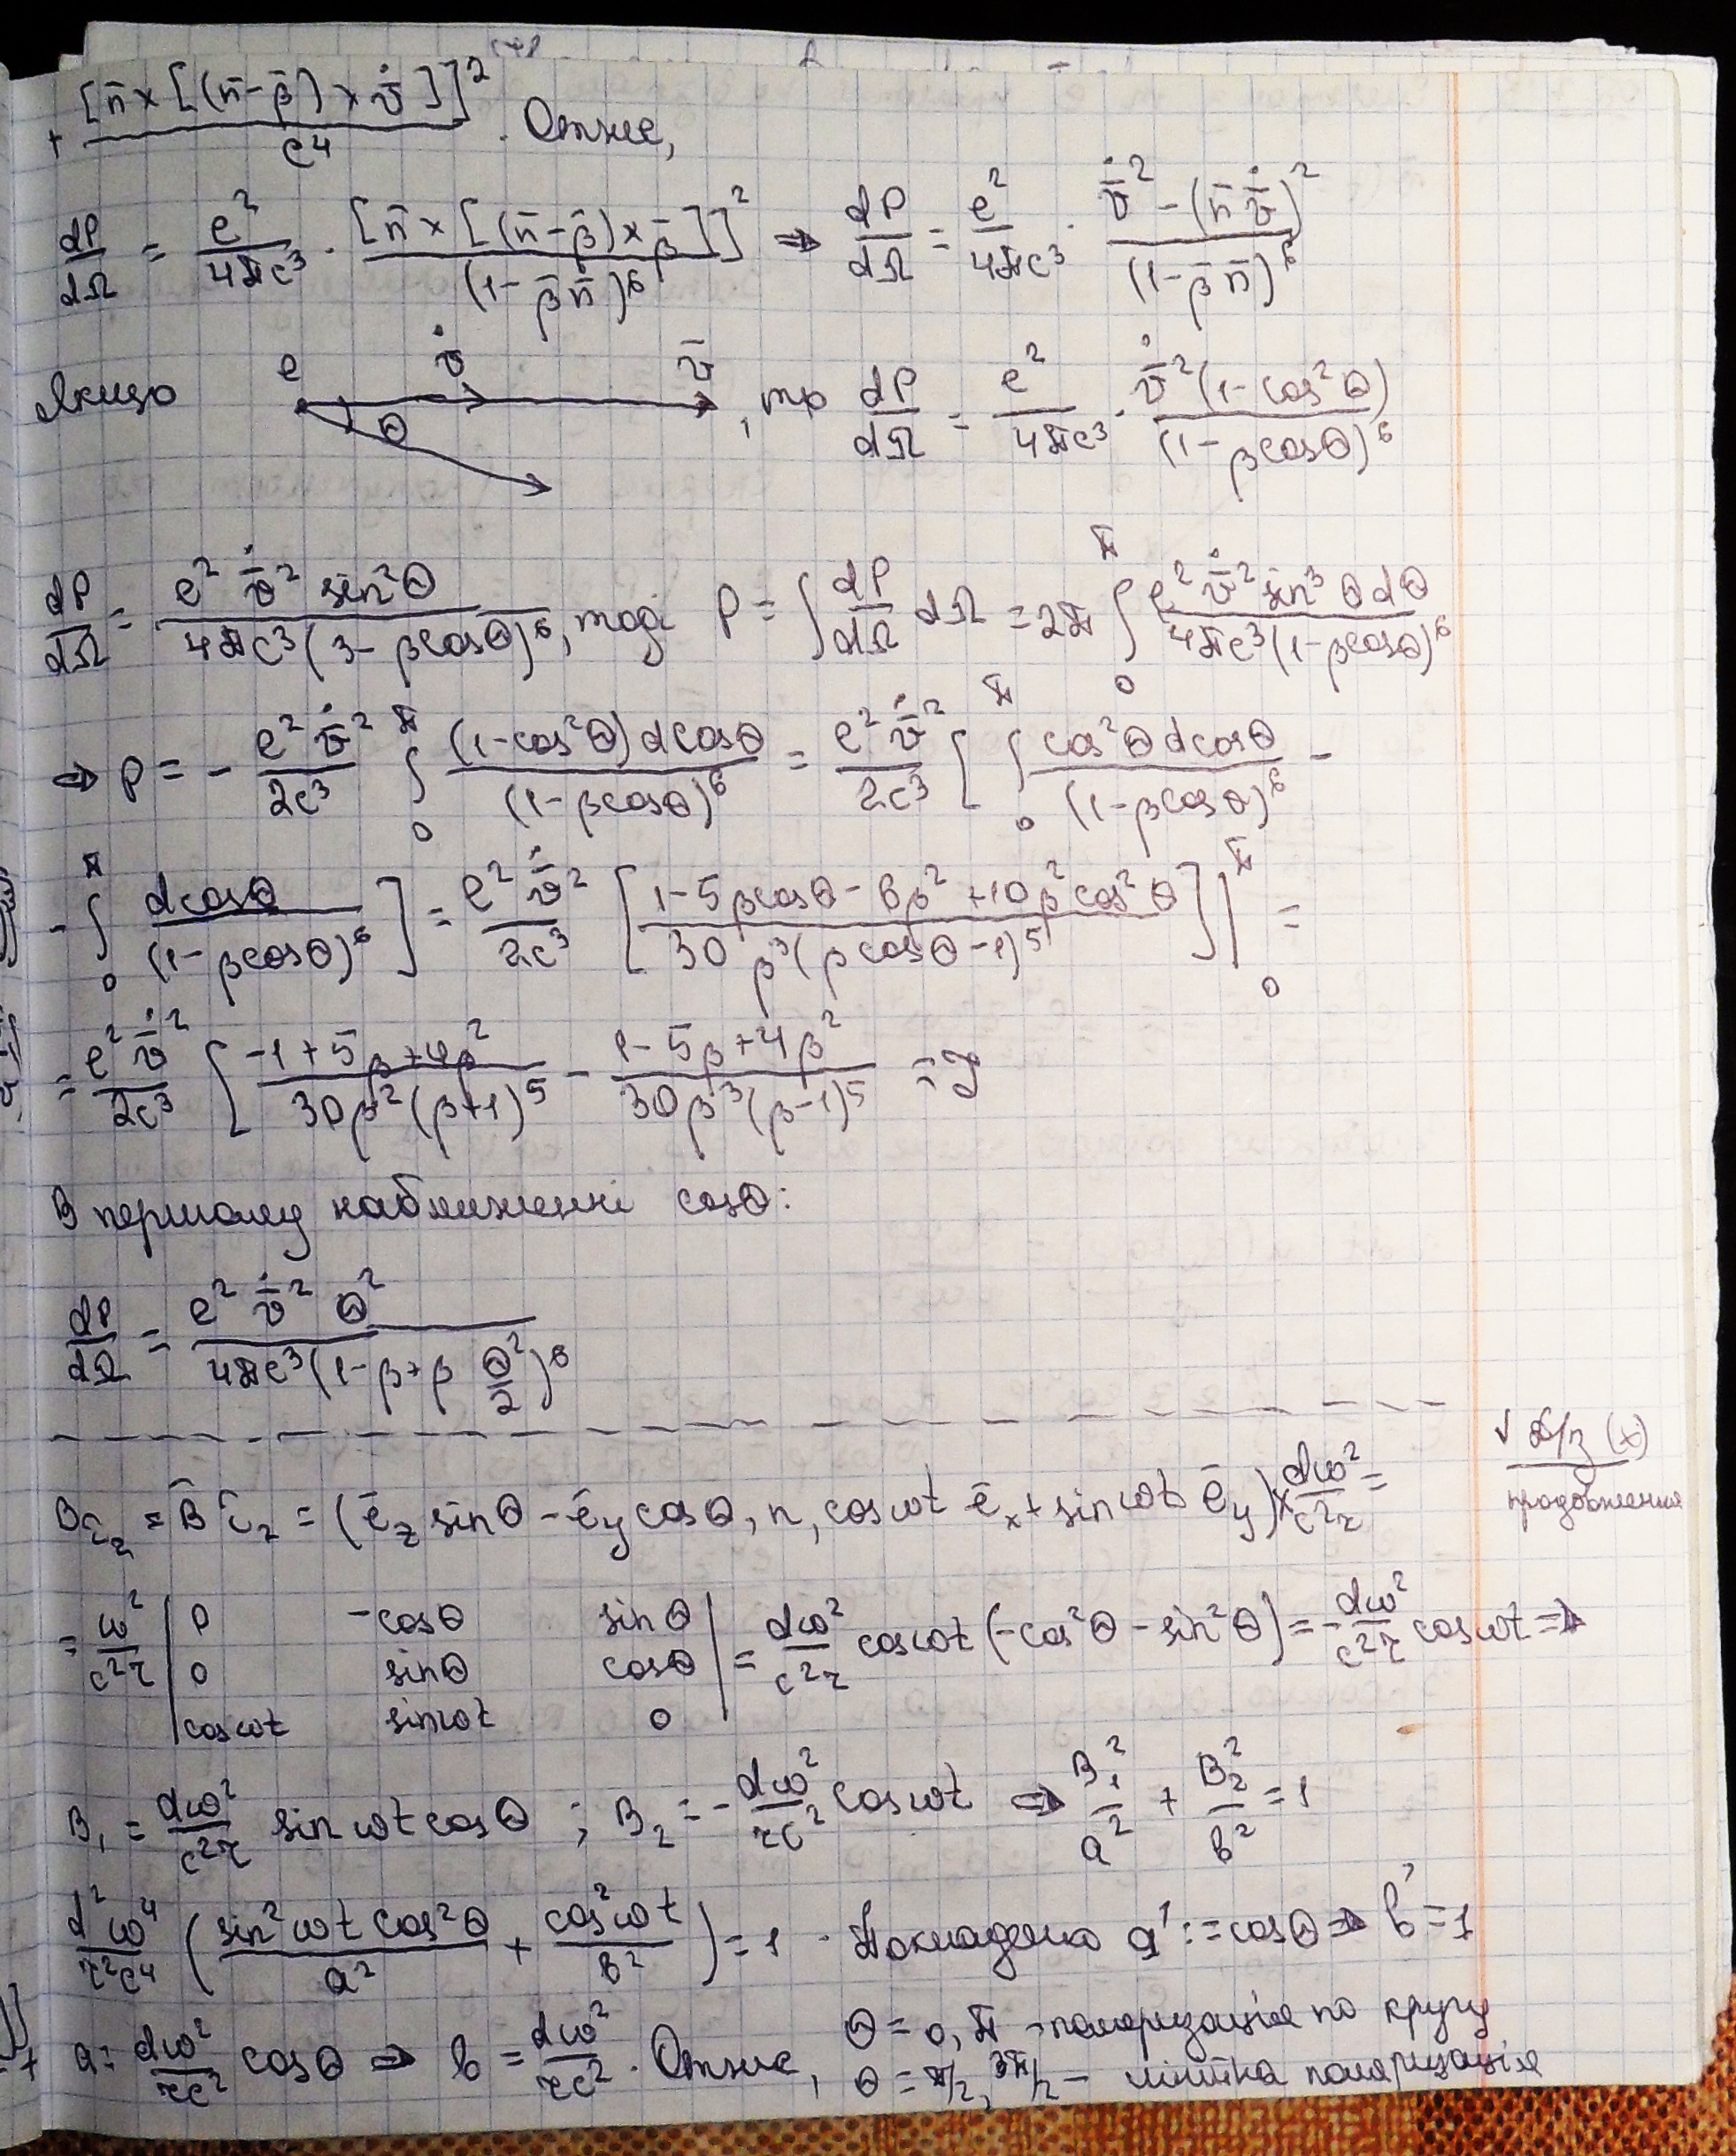 + [n̄ × [(n̄-β̄) × v̄̇]]² / c⁴ . Отже,
dP/dΩ = e²/4πc³ · [n̄ × [(n̄-β̄) × β̄̇]]² / (1-β̄n̄)⁶ ⇒ dP/dΩ = e²/4πc³ · (v̄̇² - (n̄v̄̇)²) / (1-β̄n̄)⁶
Якщо e v̄̇ v̄ θ , то dP/dΩ = e²/4πc³ · v̄̇²(1-cos²θ) / (1-βcosθ)⁶
dP/dΩ = e² v̄̇² sin²θ / 4πc³(3-βcosθ)⁶, тоді P = ∫ dP/dΩ dΩ = 2π ∫₀^π e² v̄̇² sin³θ dθ / 4πc³(1-βcosθ)⁶
⇒ P = - e² v̄̇² / 2c³ ∫₀^π (1-cos²θ) dcosθ / (1-βcosθ)⁶ = e² v̄̇² / 2c³ [ ∫₀^π cos²θ dcosθ / (1-βcosθ)⁶ -
- ∫₀^π dcosθ / (1-βcosθ)⁶ ] = e² v̄̇² / 2c³ [ (1-5βcosθ-6β²+10β²cos²θ) / 30β³(βcosθ-1)⁵ ] |₀^π =
= e² v̄̇² / 2c³ [ (-1+5β+4β²) / 30β²(β+1)⁵ - (1-5β+4β²) / 30β³(β-1)⁵ =
В першому наближенні cosθ:
dP/dΩ = e² v̄̇² θ² / 4πc³(1-β+β θ²/2)⁶
√ Д/з (x)
продовження
= (ē_z sinθ - ē_y cosθ, n, cosωt ē_x + sinωt ē_y) × dω²/c²r =
= ω²/c²r | 0 -cosθ sinθ | = dω²/c²r cosωt (-cos²θ - sin²θ) = - dω²/c²r cosωt ⇒
0 sinθ cosθ
cosωt sinωt 0
B₁ = dω²/c²r sinωt cosθ ; B₂ = - dω²/rc² cosωt ⇒ B₁²/a² + B₂²/b² = 1
d²ω⁴/r²c⁴ ( sin²ωt cos²θ / a² + cos²ωt / b² ) = 1 . Покладемо a' := cosθ ⇒ b' = 1
a = dω²/rc² cosθ ⇒ b = dω²/rc² . Отже, θ = 0, π - поляризація по кругу
θ = π/2, 3π/2 - лінійна поляризація